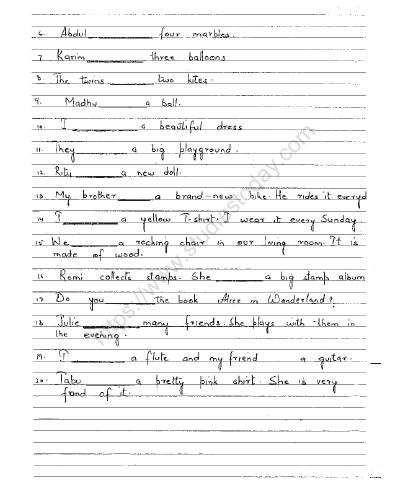 6. Abdul ________ four marbles.
7 Karim ________ three balloons
8. The twins ________ two kites.
9. Madhu ________ a ball.
10. I ________ a beautiful dress
11. They ________ a big playground.
12. Rity ________ a new doll.
13 My brother ________ a brand-new bike. He rides it everyd
14 I ________ a yellow T-shirt. I wear it every Sunday.
15 We ________ a rocking chair in our living room. It is
made of wood.
16. Romi collects stamps. She ________ a big stamp album
17 Do you ________ the book Alice in Wonderland?
18 Julie ________ many friends. She plays with them in
the evening.
19. I ________ a flute and my friend a guitar.
20. Tabu ________ a pretty pink shirt. She is very
fond of it.
https://www.studiestoday.com